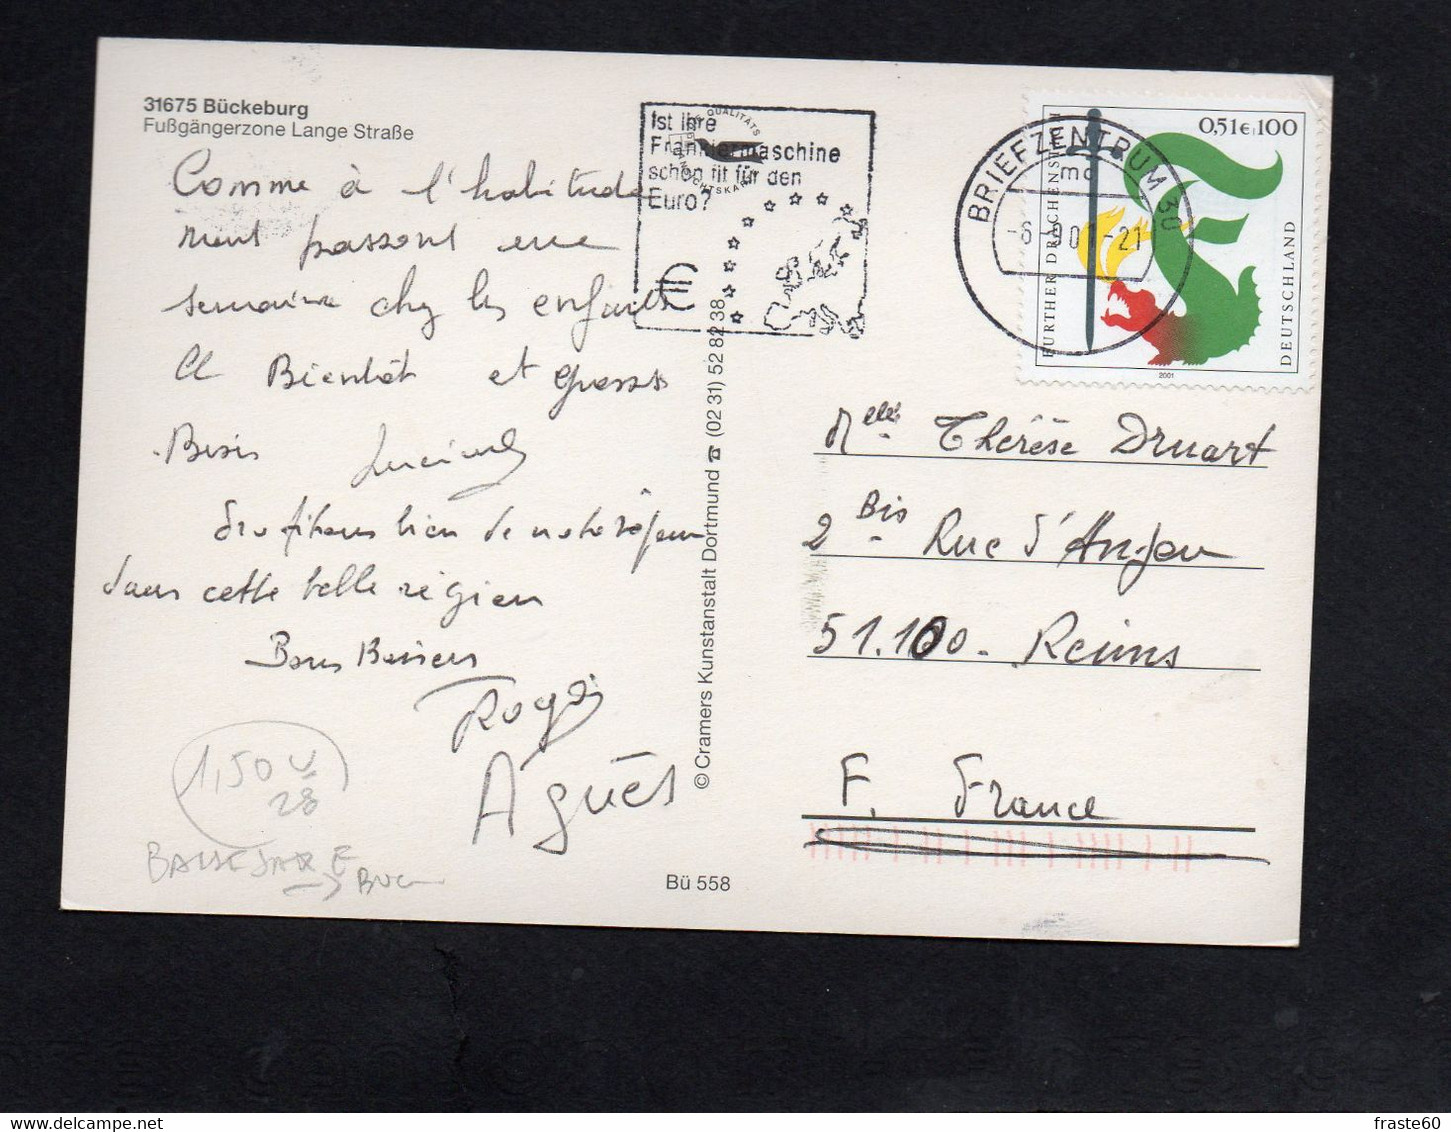 31675 Bückeburg
Fußgängerzone Lange Straße
Comme à l'habitude
nous passons une
semaine chez les enfants
A Bientôt et grosses
Bises
Profitons bien de notre séjour
dans cette belle région
Bons Baisers
Roger
Agnès
1,50
28
BASSE SAXE
Bü 558
© Cramers Kunstanstalt Dortmund ☎ (02 31) 52 82 38
Ist Ihre
Frankiermaschine
schon fit für den
Euro?
€
QUALITÄTS
BRIEFZENTRUM 30
mc
-6.-9.01-21
0,51€ 100
FURTHER DRACHENSTICH
DEUTSCHLAND
2001
Melle Thérèse Druart
2 Bis Rue d'Anjou
51.100 - Reims
F. France
fraste60